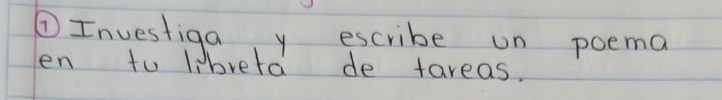 ① Investiga y escribe un poema
en tu libreta de tareas.